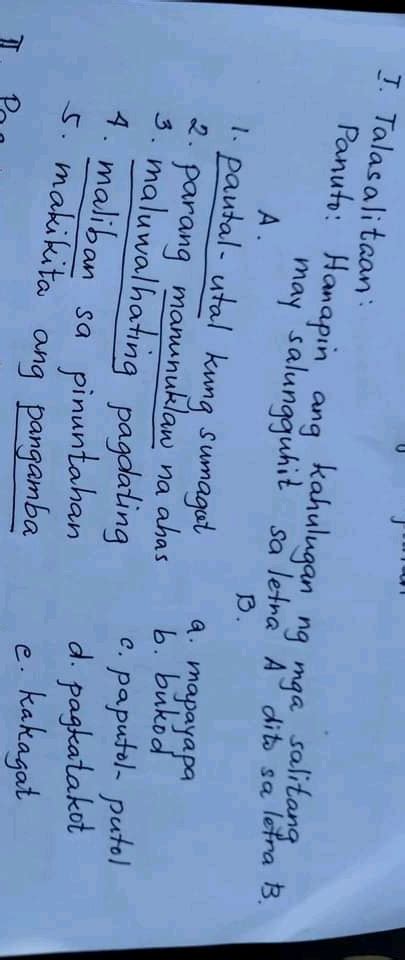 I. Talasalitaan:
Panuto: Hanapin ang kahulugan ng mga salitang
may salungguhit sa letra A dito sa letra B.
A. B.
1. pautal-utal kung sumagot a. mapayapa
2. parang manunuklaw na ahas b. bukod
3. maluwalhating pagdating c. paputol-putol
4. maliban sa pinuntahan d. pagkatakot
5. makikita ang pangamba e. kakagat
II.